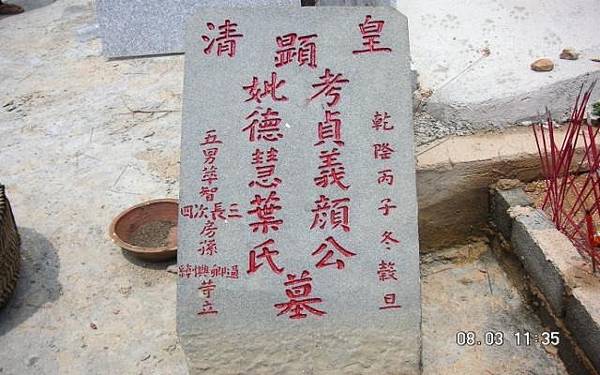 皇顯清
乾隆丙子冬穀旦
考貞義顏公
妣德慧葉氏
墓
五男萃智
三長次四
房孫
卿興
等立
08.03 11:35